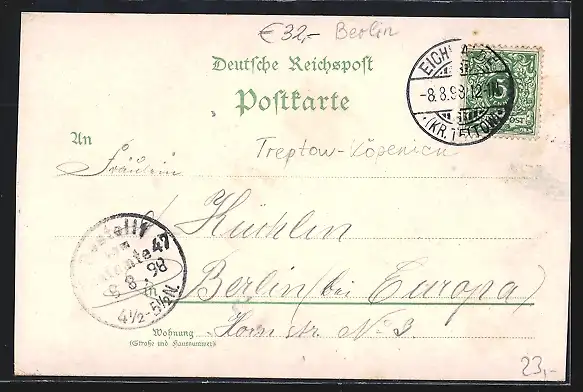 € 32,- Berlin
Deutsche Reichspost
Postkarte
EICHWALDE
-8.8.98.12-1N.
(KR. TELTOW)
An
Treptow-Köpenick
Fräulein
Küchlin
Bestellt
vom
Postamte 47
8 8 . 98
4½-5½N.
Berlin (bei Europa)
Wohnung Horn str. No 3
(Straße und Hausnummer)
23,-